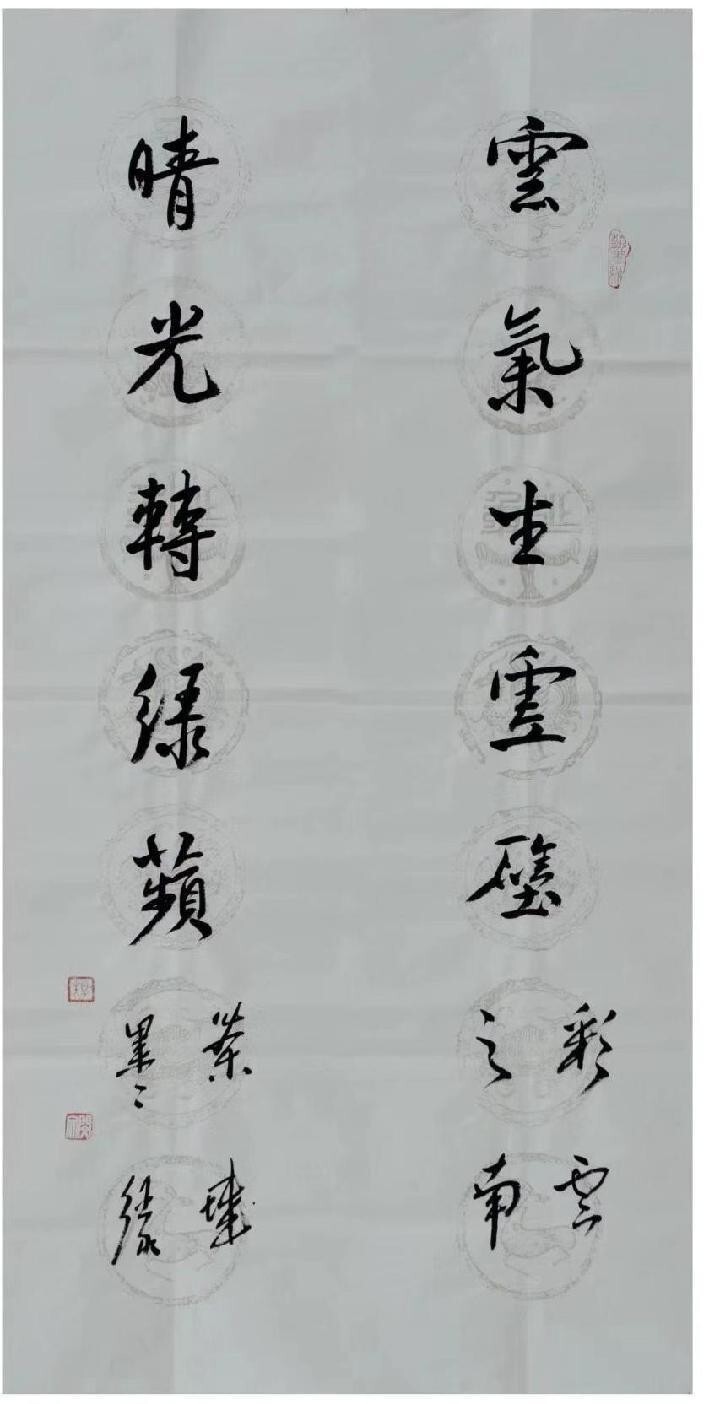 雲氣生虛壁
彩雲
之南
晴光轉綠蘋
茶城
墨緣